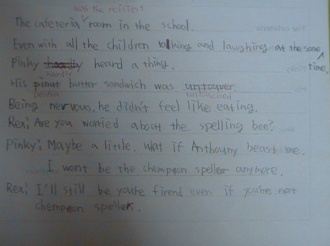 was the noisiest
The cafeteria room in the school.
Even with all the children talking and laughing at the same time,
Pinky hardly heard a thing.
His pinut butter sandwich was
Being nervous, he didn't feel like eating.
Rex: Are you worried about the spelling bee?
Pinky: Maybe a little. What if Anthony beast me.
I wont be the champion speller anymore.
Rex: I'll still be youre firend even if you're not
champeon speller.